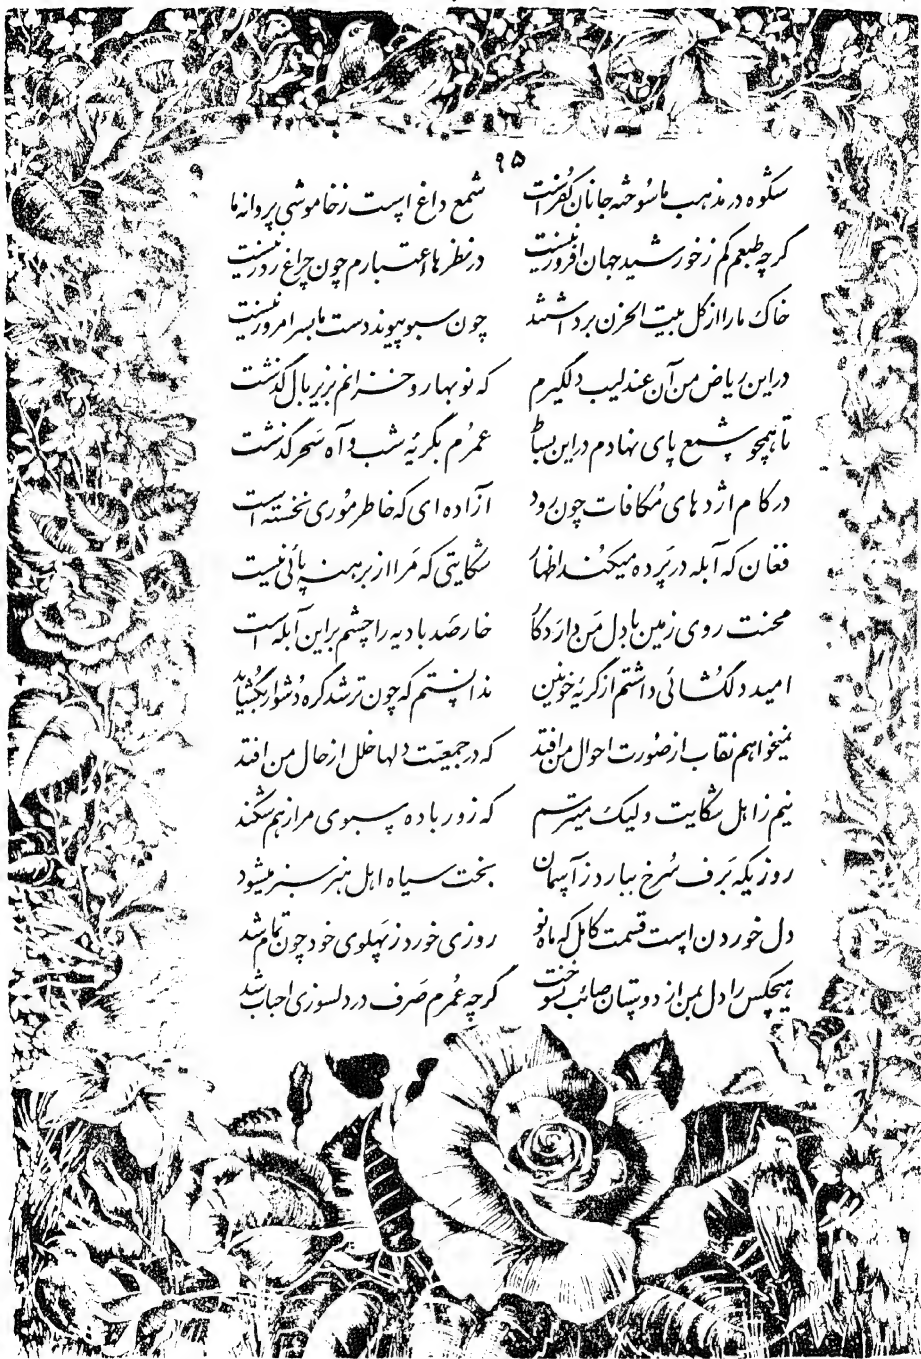 ۹۵
شکوه در مذهب ما سوخته جانان کفر است شمع داغ است ز خاموشی پروانه ما
گرچه طبعم کم ز خورشید جهان افروز نیست در نظرها اعتبارم چون چراغ روز نیست
خاک ما را از گل بیت الحزن برداشتند چون سبو پیوند دست ما بسر امروز نیست
در این ریاض من آن عندلیب دلگیرم که نوبهار و خزانم بزیر بال گذشت
تا همچو شمع پای نهادم در این بساط عمرم بگریهٔ شب و آه سحر گذشت
در کام اژدهای مکافات چون رود آزاده ای که خاطر موری نخسته است
فغان که آبله در پرده میکند اظهار شکایتی که مرا از برهنه پائی نیست
محنت روی زمین با دل من دارد کار خار صد بادیه را چشم براین آبله است
امید دلگشائی داشتم از گریهٔ خونین ندانستم که چون تر شد گره دشوار بگشاید
نمیخواهم نقاب از صورت احوال من افتد که در جمعیت دلها خلل از حال من افتد
نیم ز اهل شکایت ولیک میترسم که زور باده سبوی مرا ز هم شکند
روزیکه برف سرخ ببارد ز آسمان بخت سیاه اهل هنر سبز میشود
دل خوردن است قسمت کامل که ماه نو روزی خورد ز پهلوی خود چون تمام شد
هیچکس را دل بمن از دوستان صائب نسوخت گرچه عمرم صرف در دلسوزی احباب شد